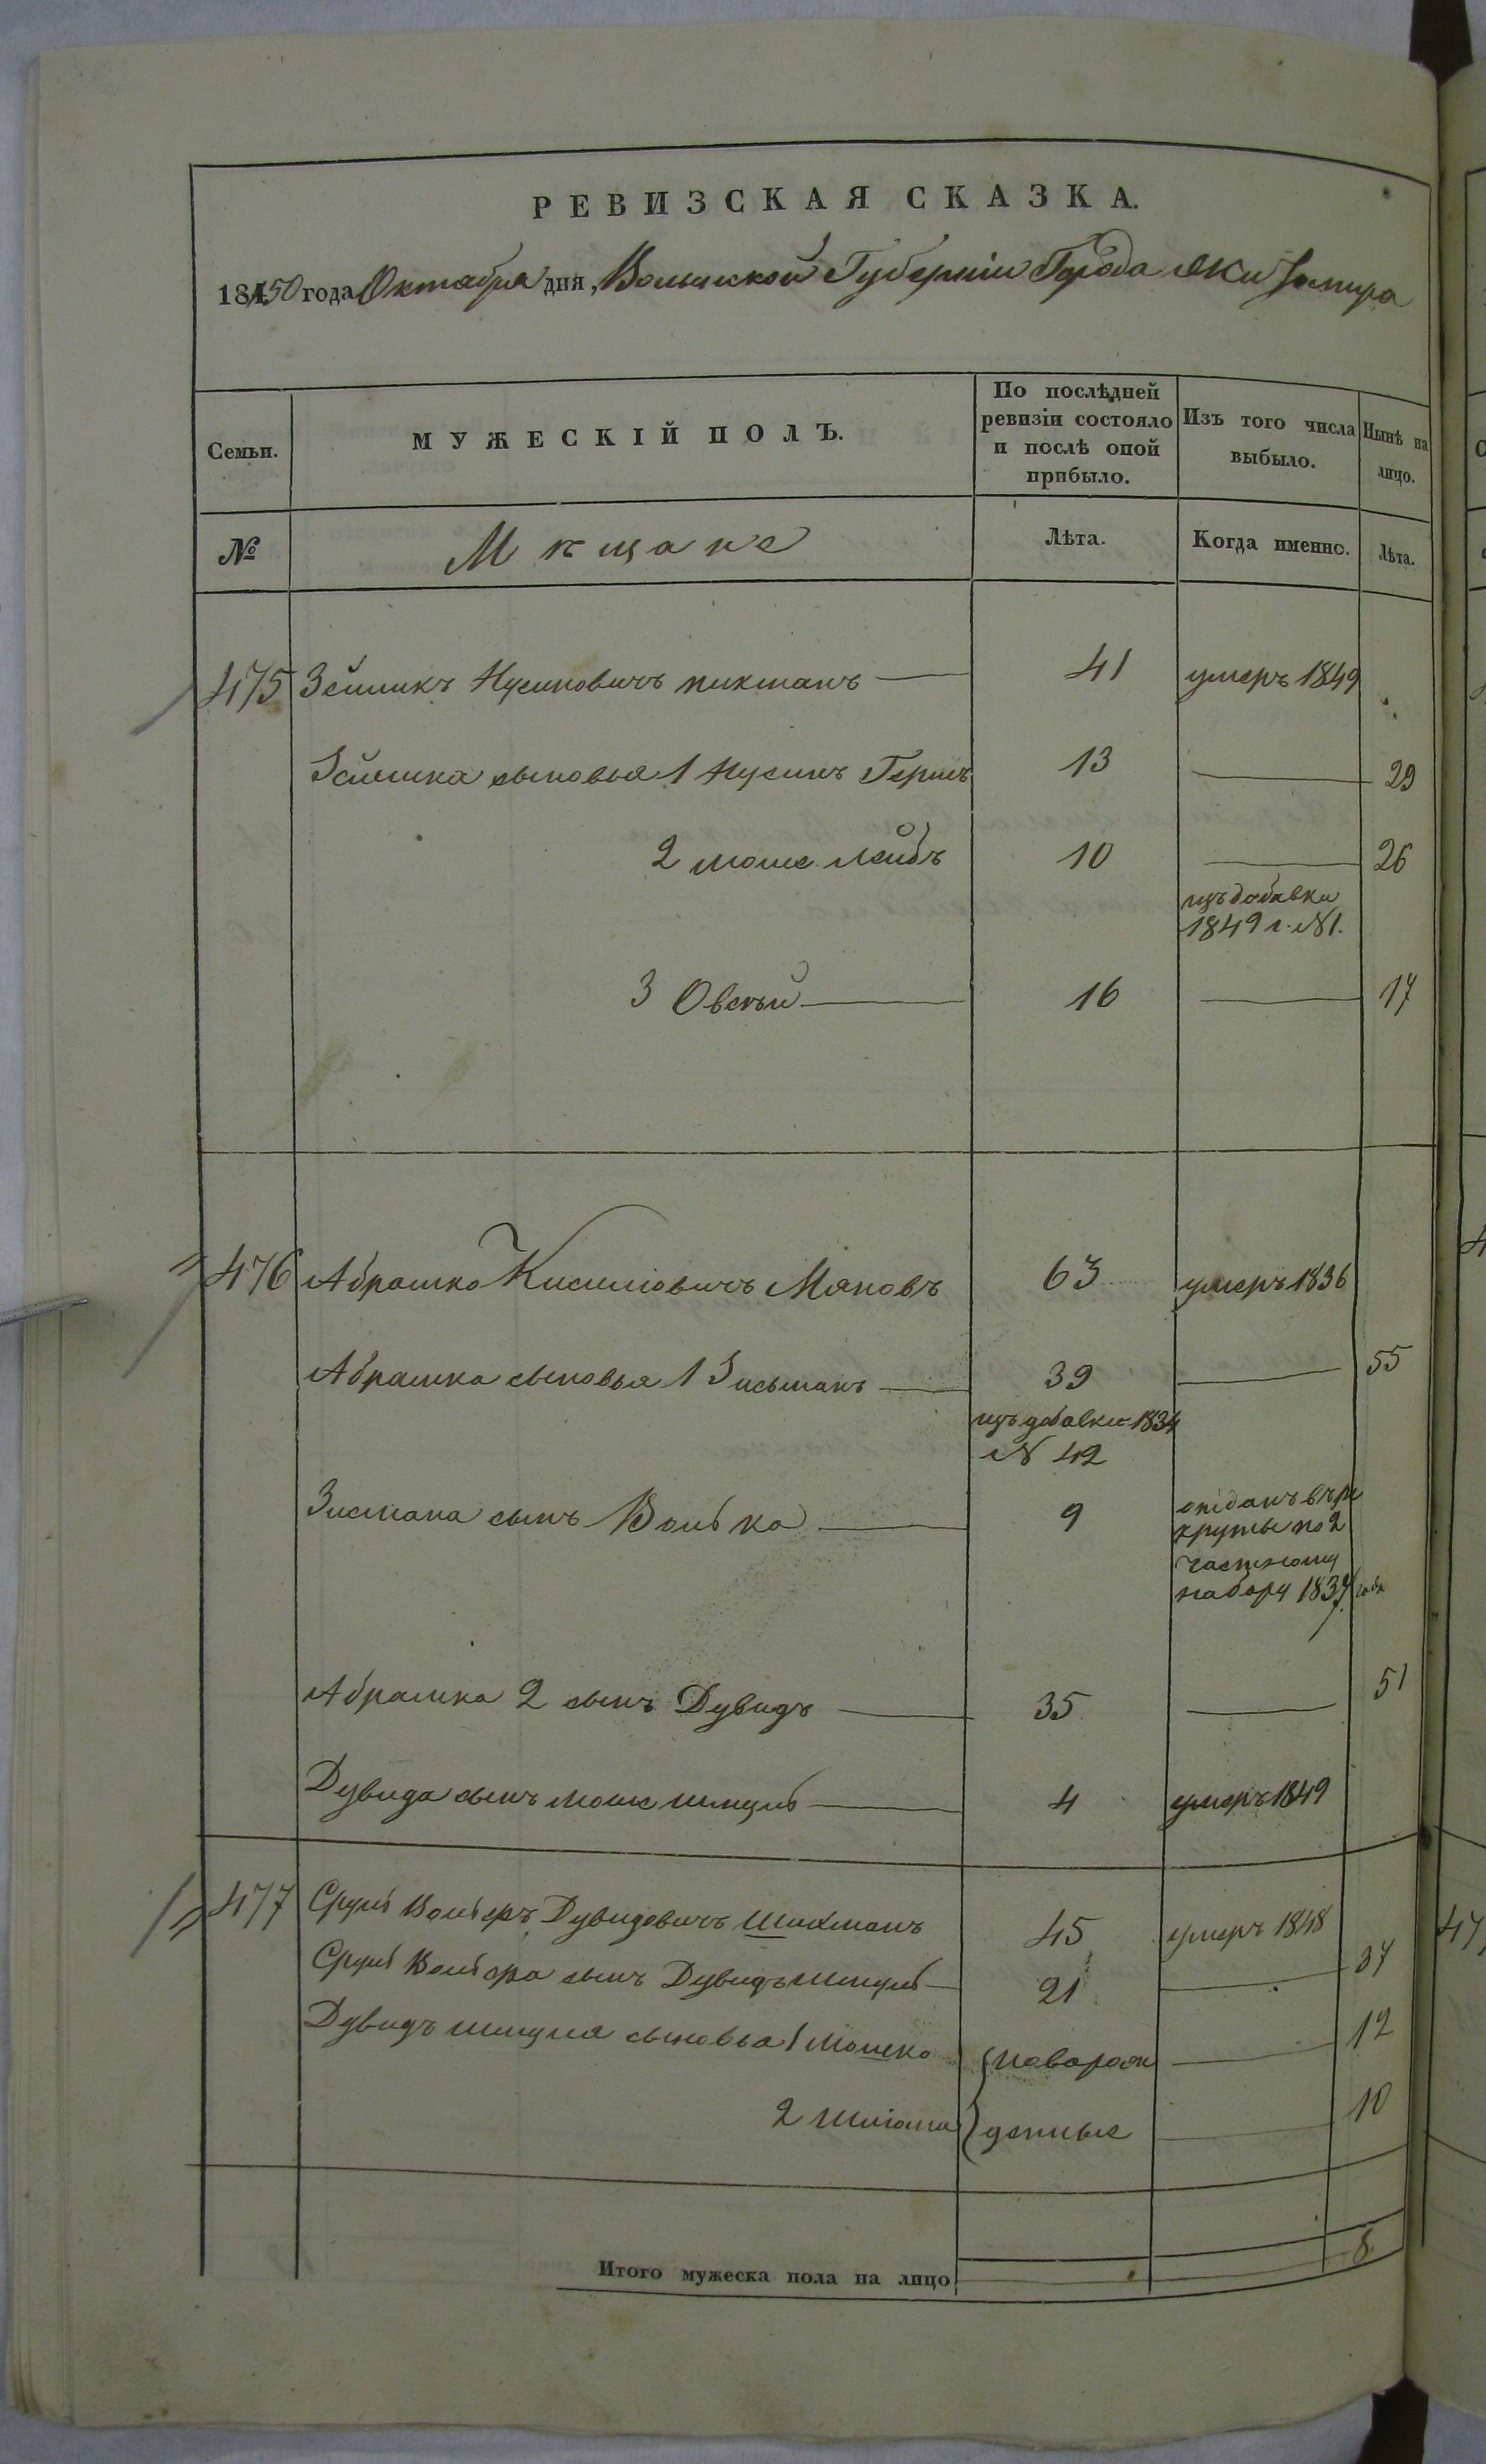 РЕВИЗСКАЯ СКАЗКА.
1850 года Октября дня, Волынской Губерніи Города Житомира
Семьи.
МУЖЕСКІЙ ПОЛЪ.
По послѣдней ревизіи состояло и послѣ оной прибыло.
Изъ того числа выбыло.
Нынѣ на лицо.
№
Мѣщане
Лѣта.
Когда именно.
Лѣта.
475 Зейликъ Нусиновичъ 41 умеръ 1849
Зейлика сыновья 1 Нусинъ Гершъ 13 29
2 Мошe Лейбъ 10 26
изъ добавки
1849 г. №1.
3 Овсѣй 16 17
476 Абрашко Киселіовичъ 63 умеръ 1836
Абрашка сыновья 1 Зисьманъ 39 55
изъ добавки 1834
№ 42
Зисмана сынъ Волько 9 отданъ въ ре
круты по 2
частному
набору 1837 года
Абрашка 2 сынъ Дувидъ 35 51
Дувида сынъ Мошe Шмуль 4 умеръ 1849
477 Сруль Вольфъ Дувидовичъ Шихманъ 45 умеръ 1848
Сруль Вольфа сынъ Дувидъ Шмуль 21 37
Дувидъ Шмуля сыновья 1 Мошко новорож 12
2 Шліома денные 10
Итого мужеска пола на лицо 8